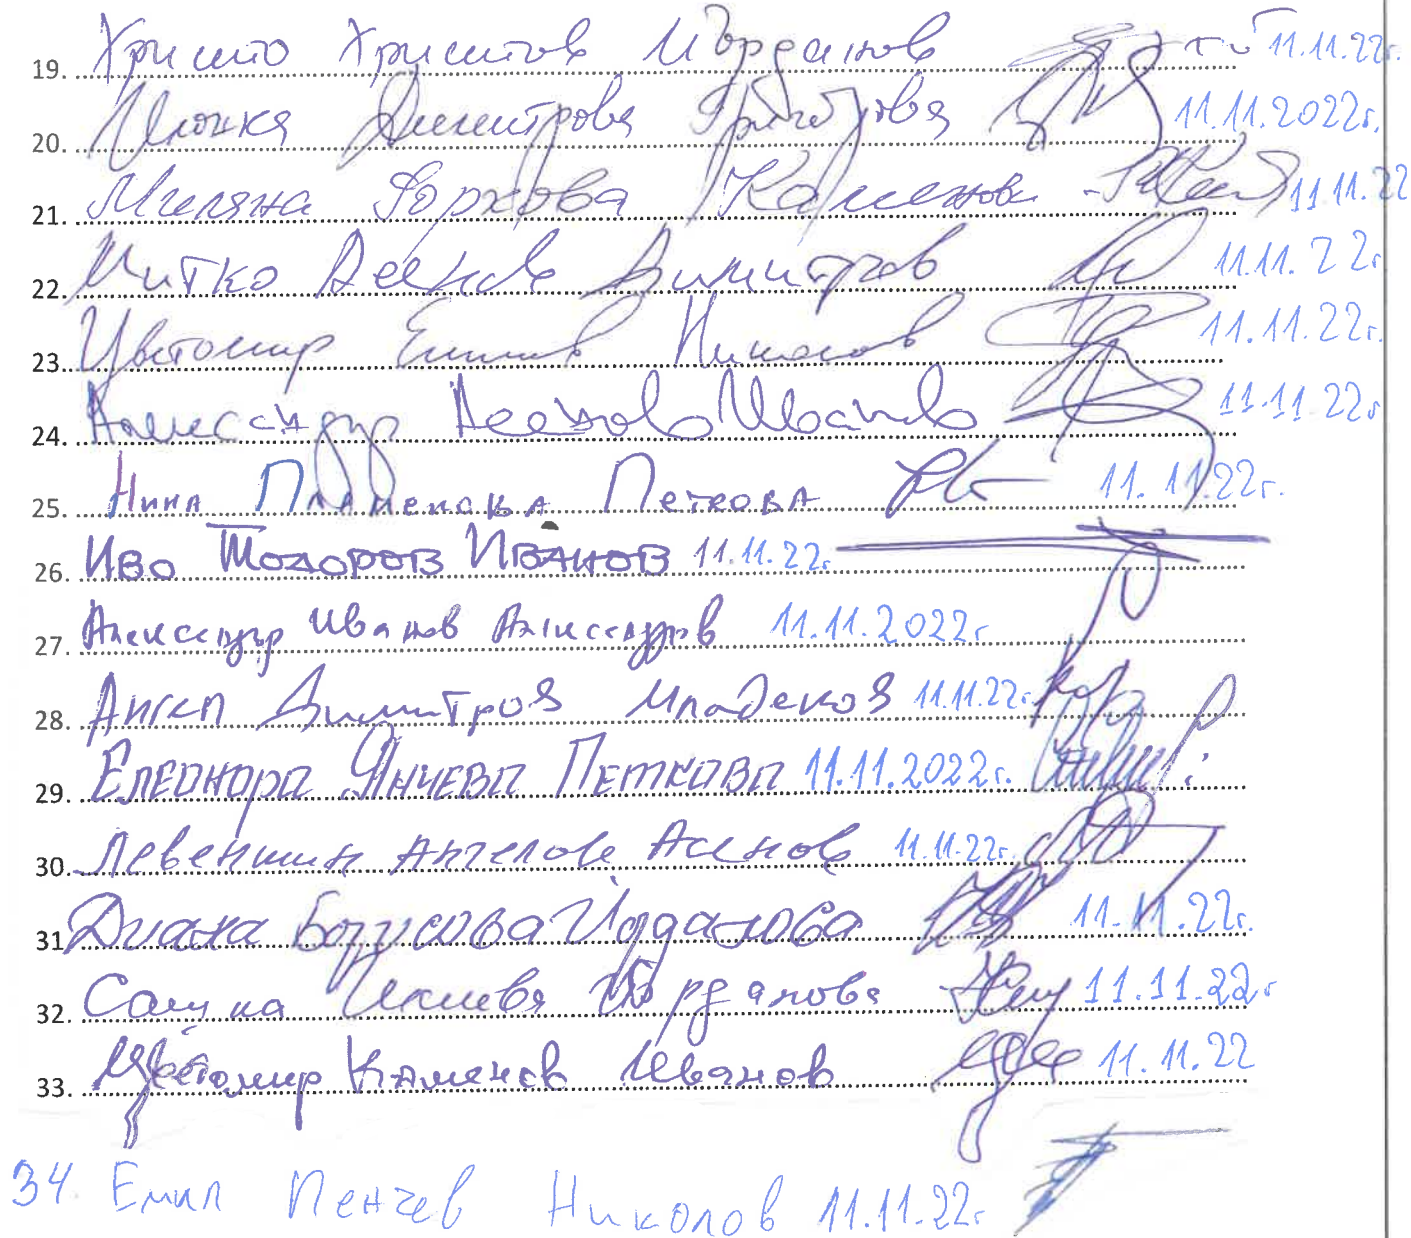 19. Христо Христов Йорданов 11.11.22г.
20. Илонка Димитрова 11.11.2022г.
21. Миляна 11.11.22
22. Митко Асенов Димитров 11.11.22г.
23. Цветомир Емилов Николов 11.11.22г.
24. Александър Асенов 11.11.22г
25. Нина Пламенова Петкова 11.11.22г.
26. Иво Тодоров Иванов 11.11.22г.
27. Александър Иванов Александров 11.11.2022г.
28. Ангел Димитров Младенов 11.11.22г.
29. Елеонора Янчева Петкова 11.11.2022г.
30. Ангелов Асенов 11.11.22г.
31. Диана Йорданова 11.11.22г.
32. Йорданова 11.11.22г
33. Цветомир Каменов Иванов 11.11.22
34. Емил Пенчев Николов 11.11.22г.